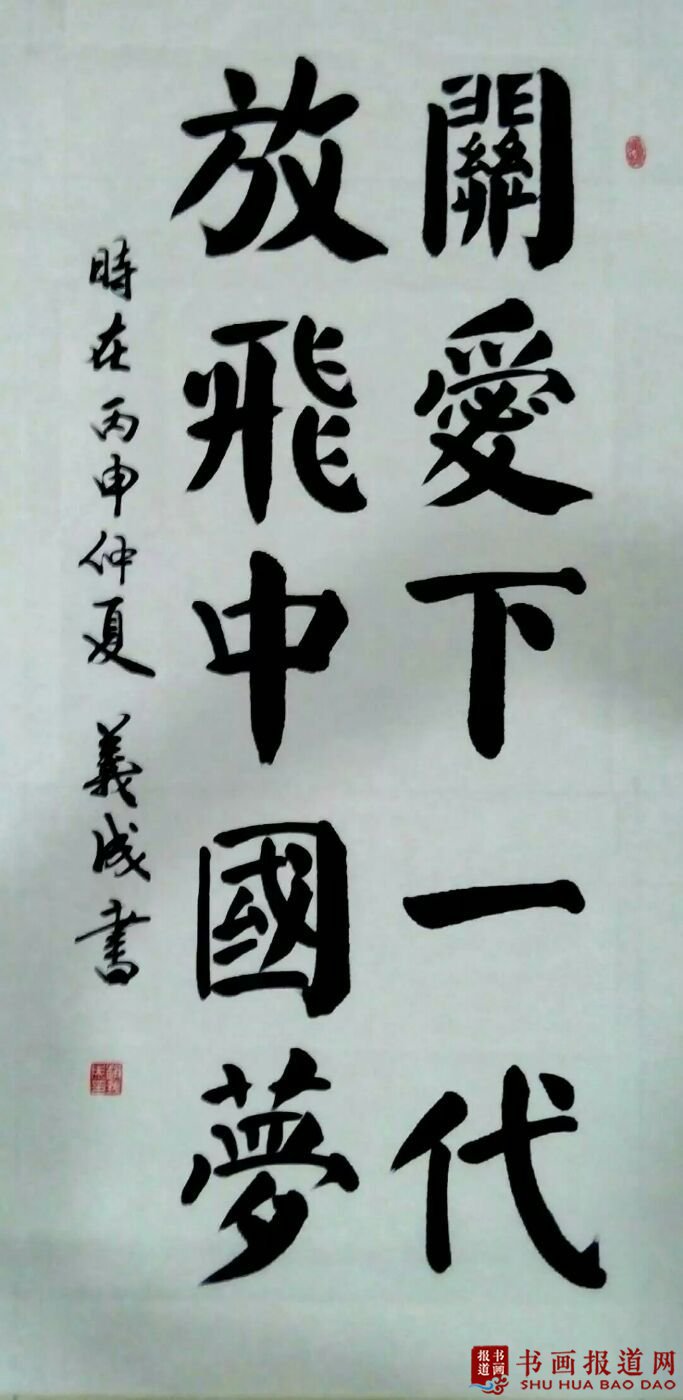 關愛下一代
放飛中國夢
時在丙申仲夏 義成書
书画报道
书画报道网
SHU HUA BAO DAO